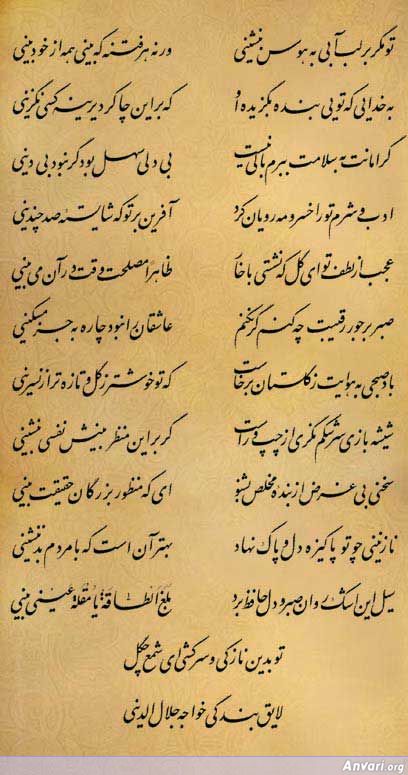 تو مگر بر لب آبی به هوس بنشینی ورنه هر فتنه که بینی همه از خود بینی
به خدایی که تویی بنده بگزیده او که بر این چاکر دیرینه کسی نگزینی
گر امانت به سلامت ببرم باکی نیست بی دلی سهل بود گر نبود بی دینی
ادب و شرم تو را خسرو مه رویان کرد آفرین بر تو که شایسته صد چندینی
عجب از لطف تو ای گل که نشستی با خار ظاهرا مصلحت وقت در آن می بینی
صبر بر جور رقیبت چه کنم گر نکنم عاشقان را نبود چاره به جز مسکینی
باد صبحی به هوایت ز گلستان برخاست که تو خوشتر ز گل و تازه تر از نسرینی
شیشه بازی سرشکم نگری از چپ و راست گر بر این منظر بینش نفسی بنشینی
سخنی بی غرض از بنده مخلص بشنو ای که منظور بزرگان حقیقت بینی
نازنینی چو تو پاکیزه دل و پاک نهاد بهتر آن است که با مردم بد ننشینی
سیل این اشک روان صبر و دل حافظ برد بلغ الطاقة یا مقلة عینی بینی
تو بدین نازکی و سرکشی ای شمع چگل
لایق بندگی خواجه جلال الدینی
Anvari.org